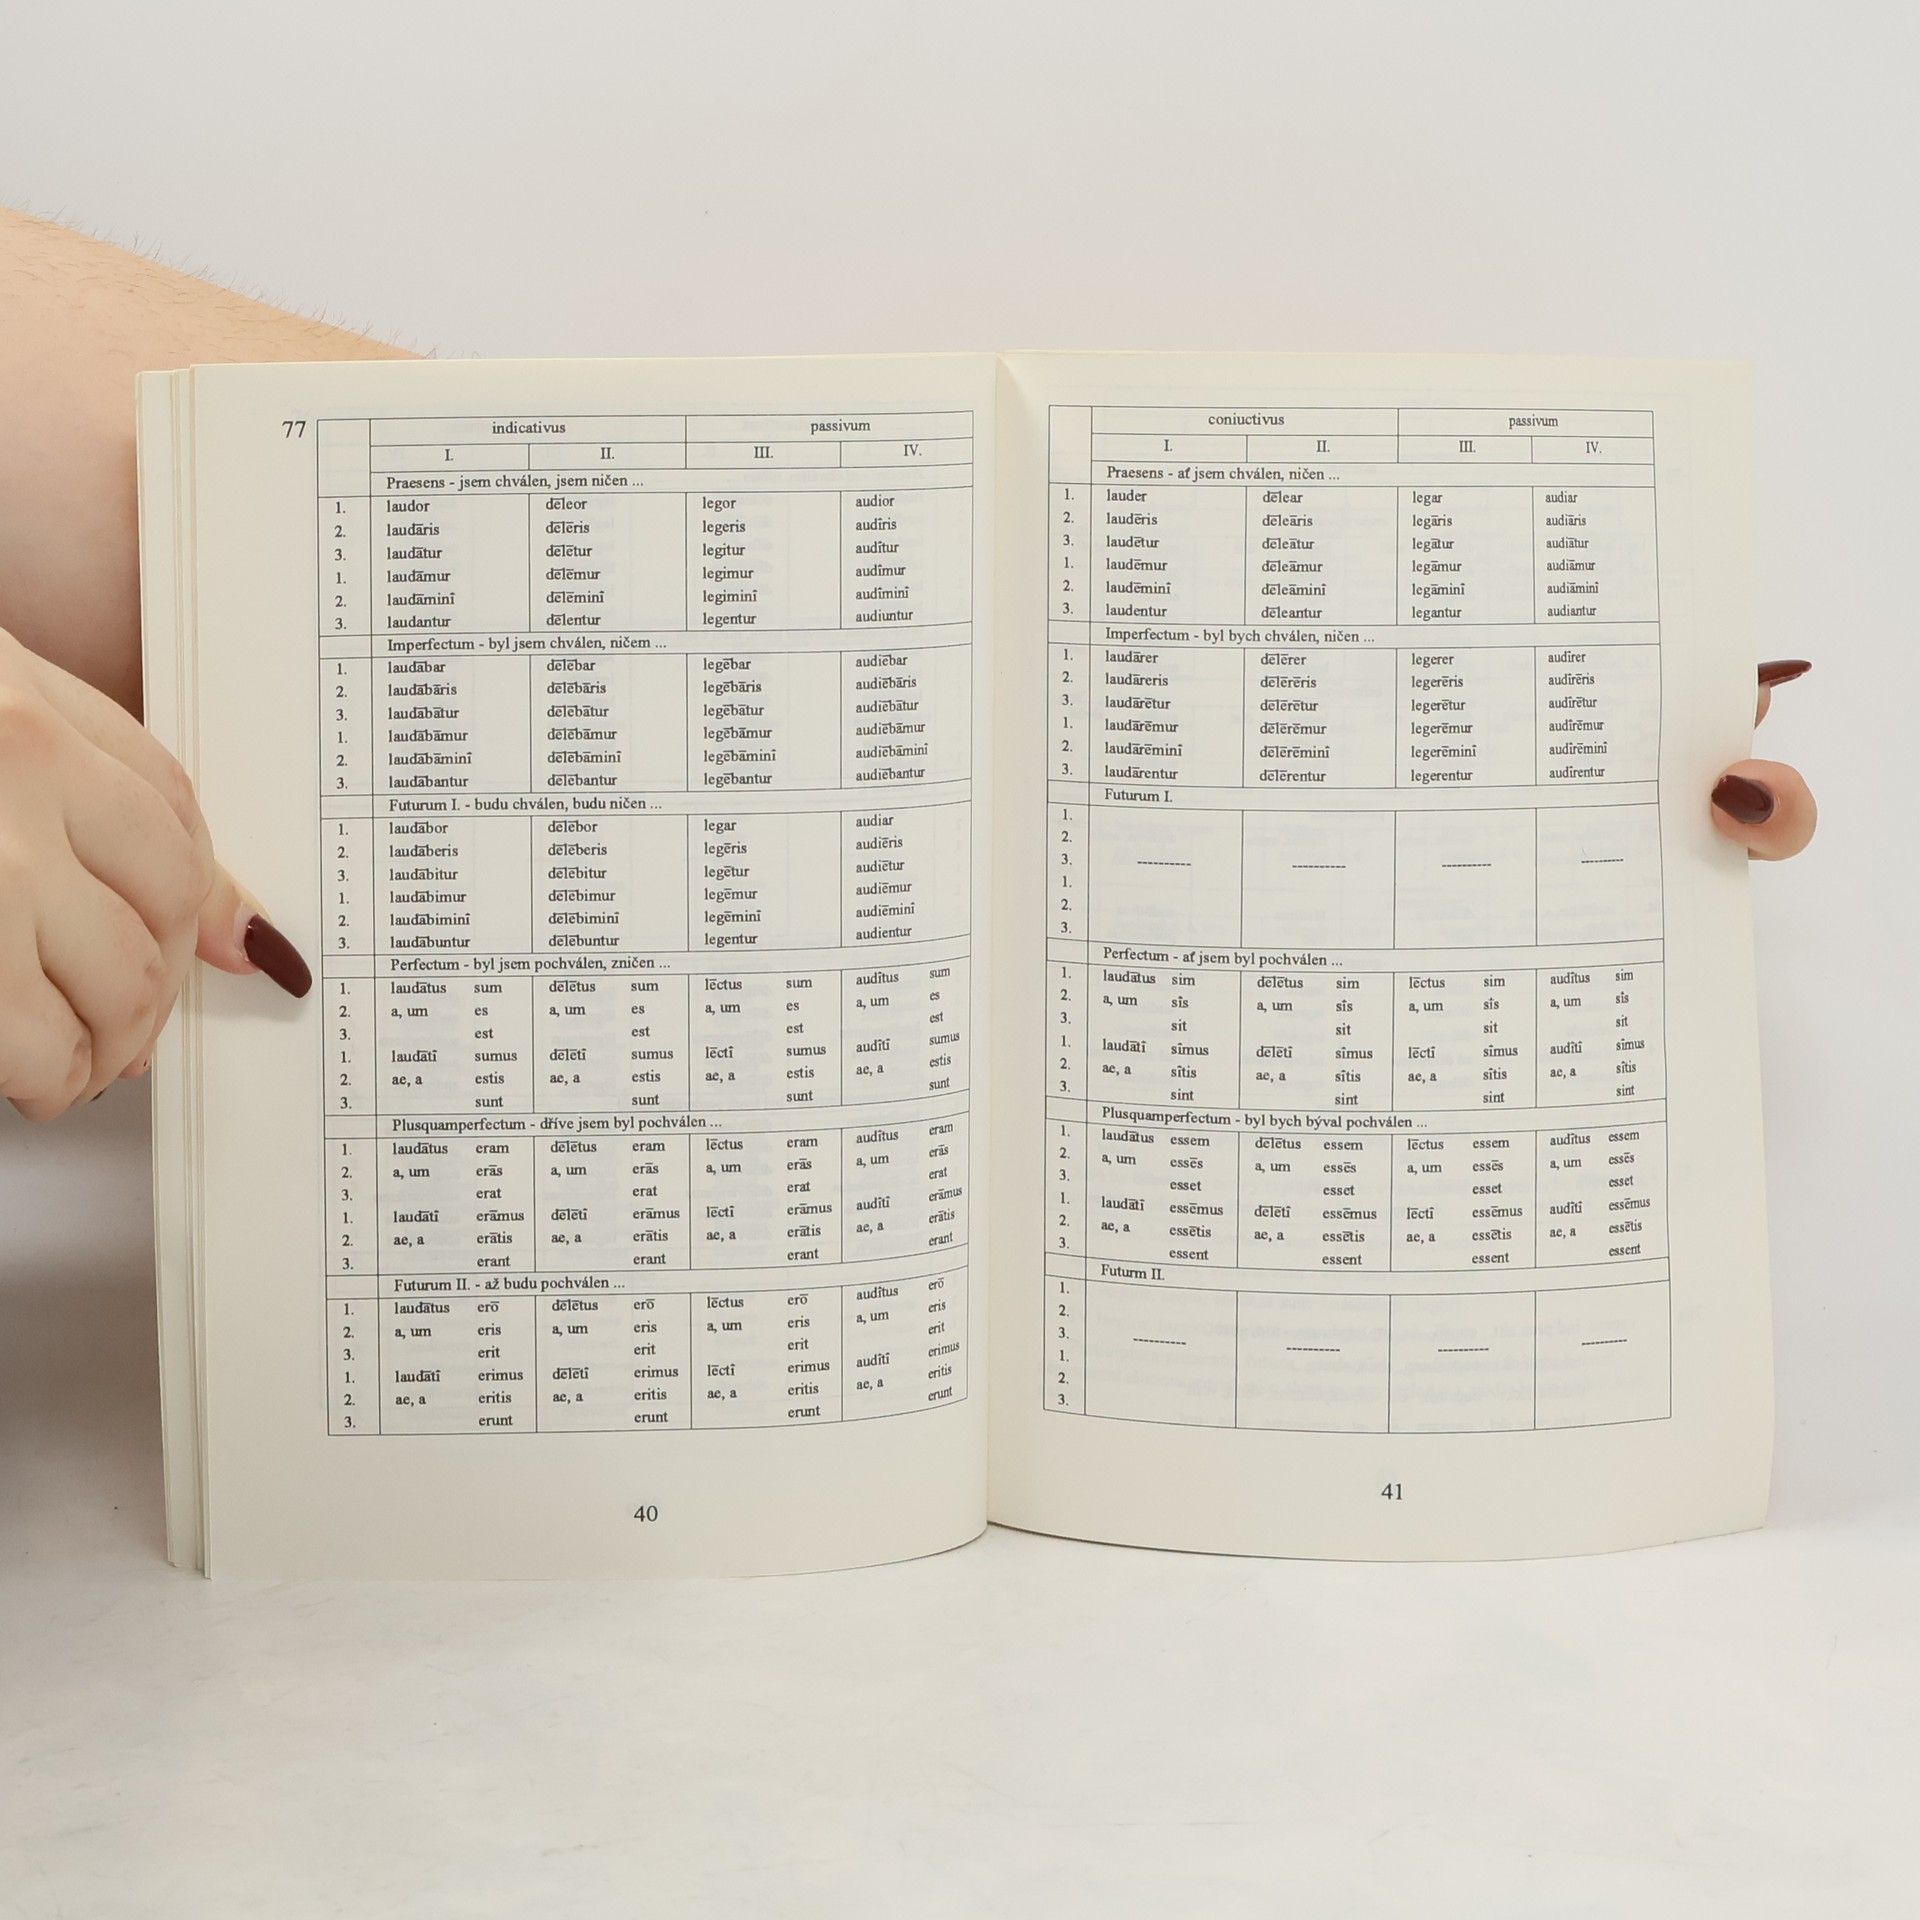 77
indicativus passivum
I. II. III. IV.
Praesens - jsem chválen, jsem ničen ...
1. laudor dēleor legor audior
2. laudāris dēlēris legeris audîris
3. laudātur dēlētur legitur audîtur
1. laudāmur dēlēmur legimur audîmur
2. laudāminî dēlēminî legiminî audîminî
3. laudantur dēlentur legentur audiuntur
Imperfectum - byl jsem chválen, ničem ...
1. laudābar dēlēbar legēbar audiēbar
2. laudābāris dēlēbāris legēbāris audiēbāris
3. laudābātur dēlēbātur legēbātur audiēbātur
1. laudābāmur dēlēbāmur legēbāmur audiēbāmur
2. laudābāminî dēlēbāminî legēbāminî audiēbāminî
3. laudābantur dēlēbantur legēbantur audiēbantur
Futurum I. - budu chválen, budu ničen ...
1. laudābor dēlēbor legar audiar
2. laudāberis dēlēberis legēris audiēris
3. laudābitur dēlēbitur legētur audiētur
1. laudābimur dēlēbimur legēmur audiēmur
2. laudābiminî dēlēbiminî legēminî audiēminî
3. laudābuntur dēlēbuntur legentur audientur
Perfectum - byl jsem pochválen, zničen ...
1. laudātus sum dēlētus sum lēctus sum audîtus sum
2. a, um es a, um es a, um es a, um es
3. est est est est
1. laudātî sumus dēlētî sumus lēctî sumus audîtî sumus
2. ae, a estis ae, a estis ae, a estis ae, a estis
3. sunt sunt sunt sunt
Plusquamperfectum - dříve jsem byl pochválen ...
1. laudātus eram dēlētus eram lēctus eram audîtus eram
2. a, um erās a, um erās a, um erās a, um erās
3. erat erat erat erat
1. laudātî erāmus dēlētî erāmus lēctî erāmus audîtî erāmus
2. ae, a erātis ae, a erātis ae, a erātis ae, a erātis
3. erant erant erant erant
Futurum II. - až budu pochválen ...
1. laudātus erō dēlētus erō lēctus erō audîtus erō
2. a, um eris a, um eris a, um eris a, um eris
3. erit erit erit erit
1. laudātî erimus dēlētî erimus lēctî erimus audîtî erimus
2. ae, a eritis ae, a eritis ae, a eritis ae, a eritis
3. erunt erunt erunt erunt
40
coniuctivus passivum
I. II. III. IV.
Praesens - ať jsem chválen, ničen ...
1. lauder dēlear legar audiar
2. laudēris dēleāris legāris audiāris
3. laudētur dēleātur legātur audiātur
1. laudēmur dēleāmur legāmur audiāmur
2. laudēminî dēleāminî legāminî audiāminî
3. laudentur dēleantur legantur audiantur
Imperfectum - byl bych chválen, ničen ...
1. laudārer dēlērer legerer audîrer
2. laudāreris dēlērēris legerēris audîrēris
3. laudārētur dēlērētur legerētur audîrētur
1. laudārēmur dēlērēmur legerēmur audîrēmur
2. laudārēminî dēlērēminî legerēminî audîrēminî
3. laudārentur dēlērentur legerentur audîrentur
Futurum I.
1.
2.
3. ---------- ---------- ---------- ----------
1.
2.
3.
Perfectum - ať jsem byl pochválen ...
1. laudātus sim dēlētus sim lēctus sim audîtus sim
2. a, um sîs a, um sîs a, um sîs a, um sîs
3. sit sit sit sit
1. laudātî sîmus dēlētî sîmus lēctî sîmus audîtî sîmus
2. ae, a sîtis ae, a sîtis ae, a sîtis ae, a sîtis
3. sint sint sint sint
Plusquamperfectum - byl bych býval pochválen ...
1. laudātus essem dēlētus essem lēctus essem audîtus essem
2. a, um essēs a, um essēs a, um essēs a, um essēs
3. esset esset esset esset
1. laudātî essēmus dēlētî essēmus lēctî essēmus audîtî essēmus
2. ae, a essētis ae, a essētis ae, a essētis ae, a essētis
3. essent essent essent essent
Futurm II.
1.
2.
3. ---------- ---------- ---------- ----------
1.
2.
3.
41